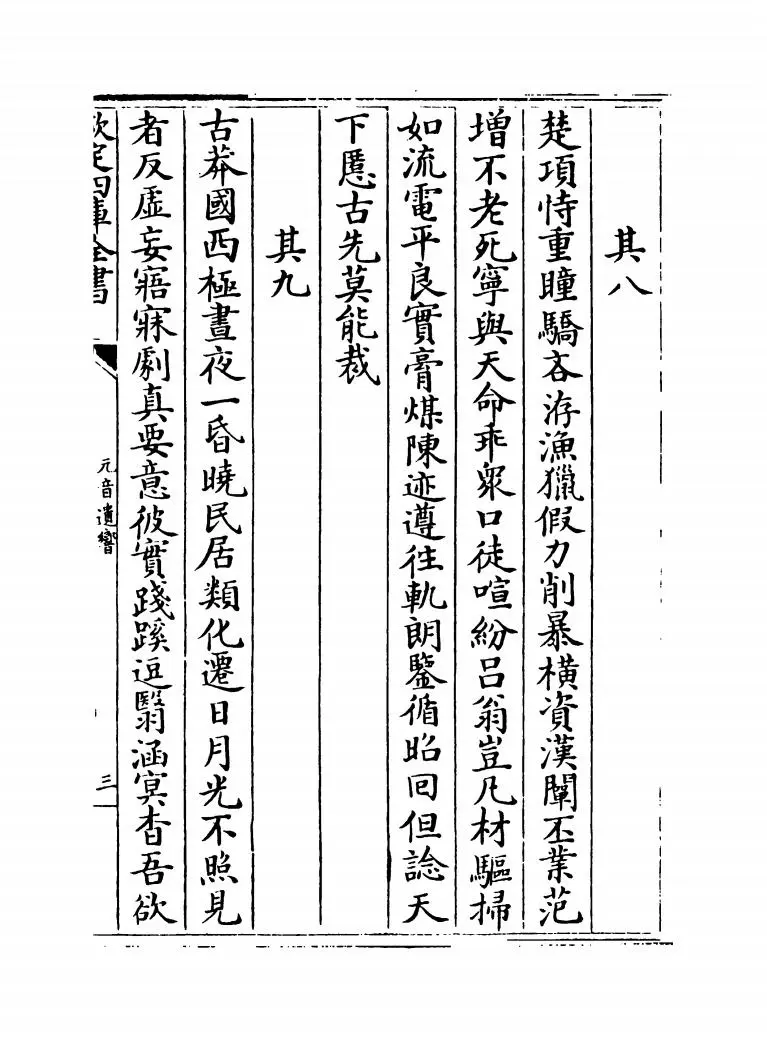 其八
楚項恃重瞳驕吝洊漁獵假力削暴横資漢闡丕業范
增不老死寧與天命乖衆口徒喧紛吕翁豈凡材驅掃
如流電平良實膏煤陳迹遵往軌朗鑒循昭囘但諗天
下慝古先莫能裁
其九
古莽國西極晝夜一昏曉民居類化遷日月光不照見
者反虛妄寤寐劇真要意彼實踐蹊逗翳涵冥杳吾欲
欽定四庫全書
元音遺響
三